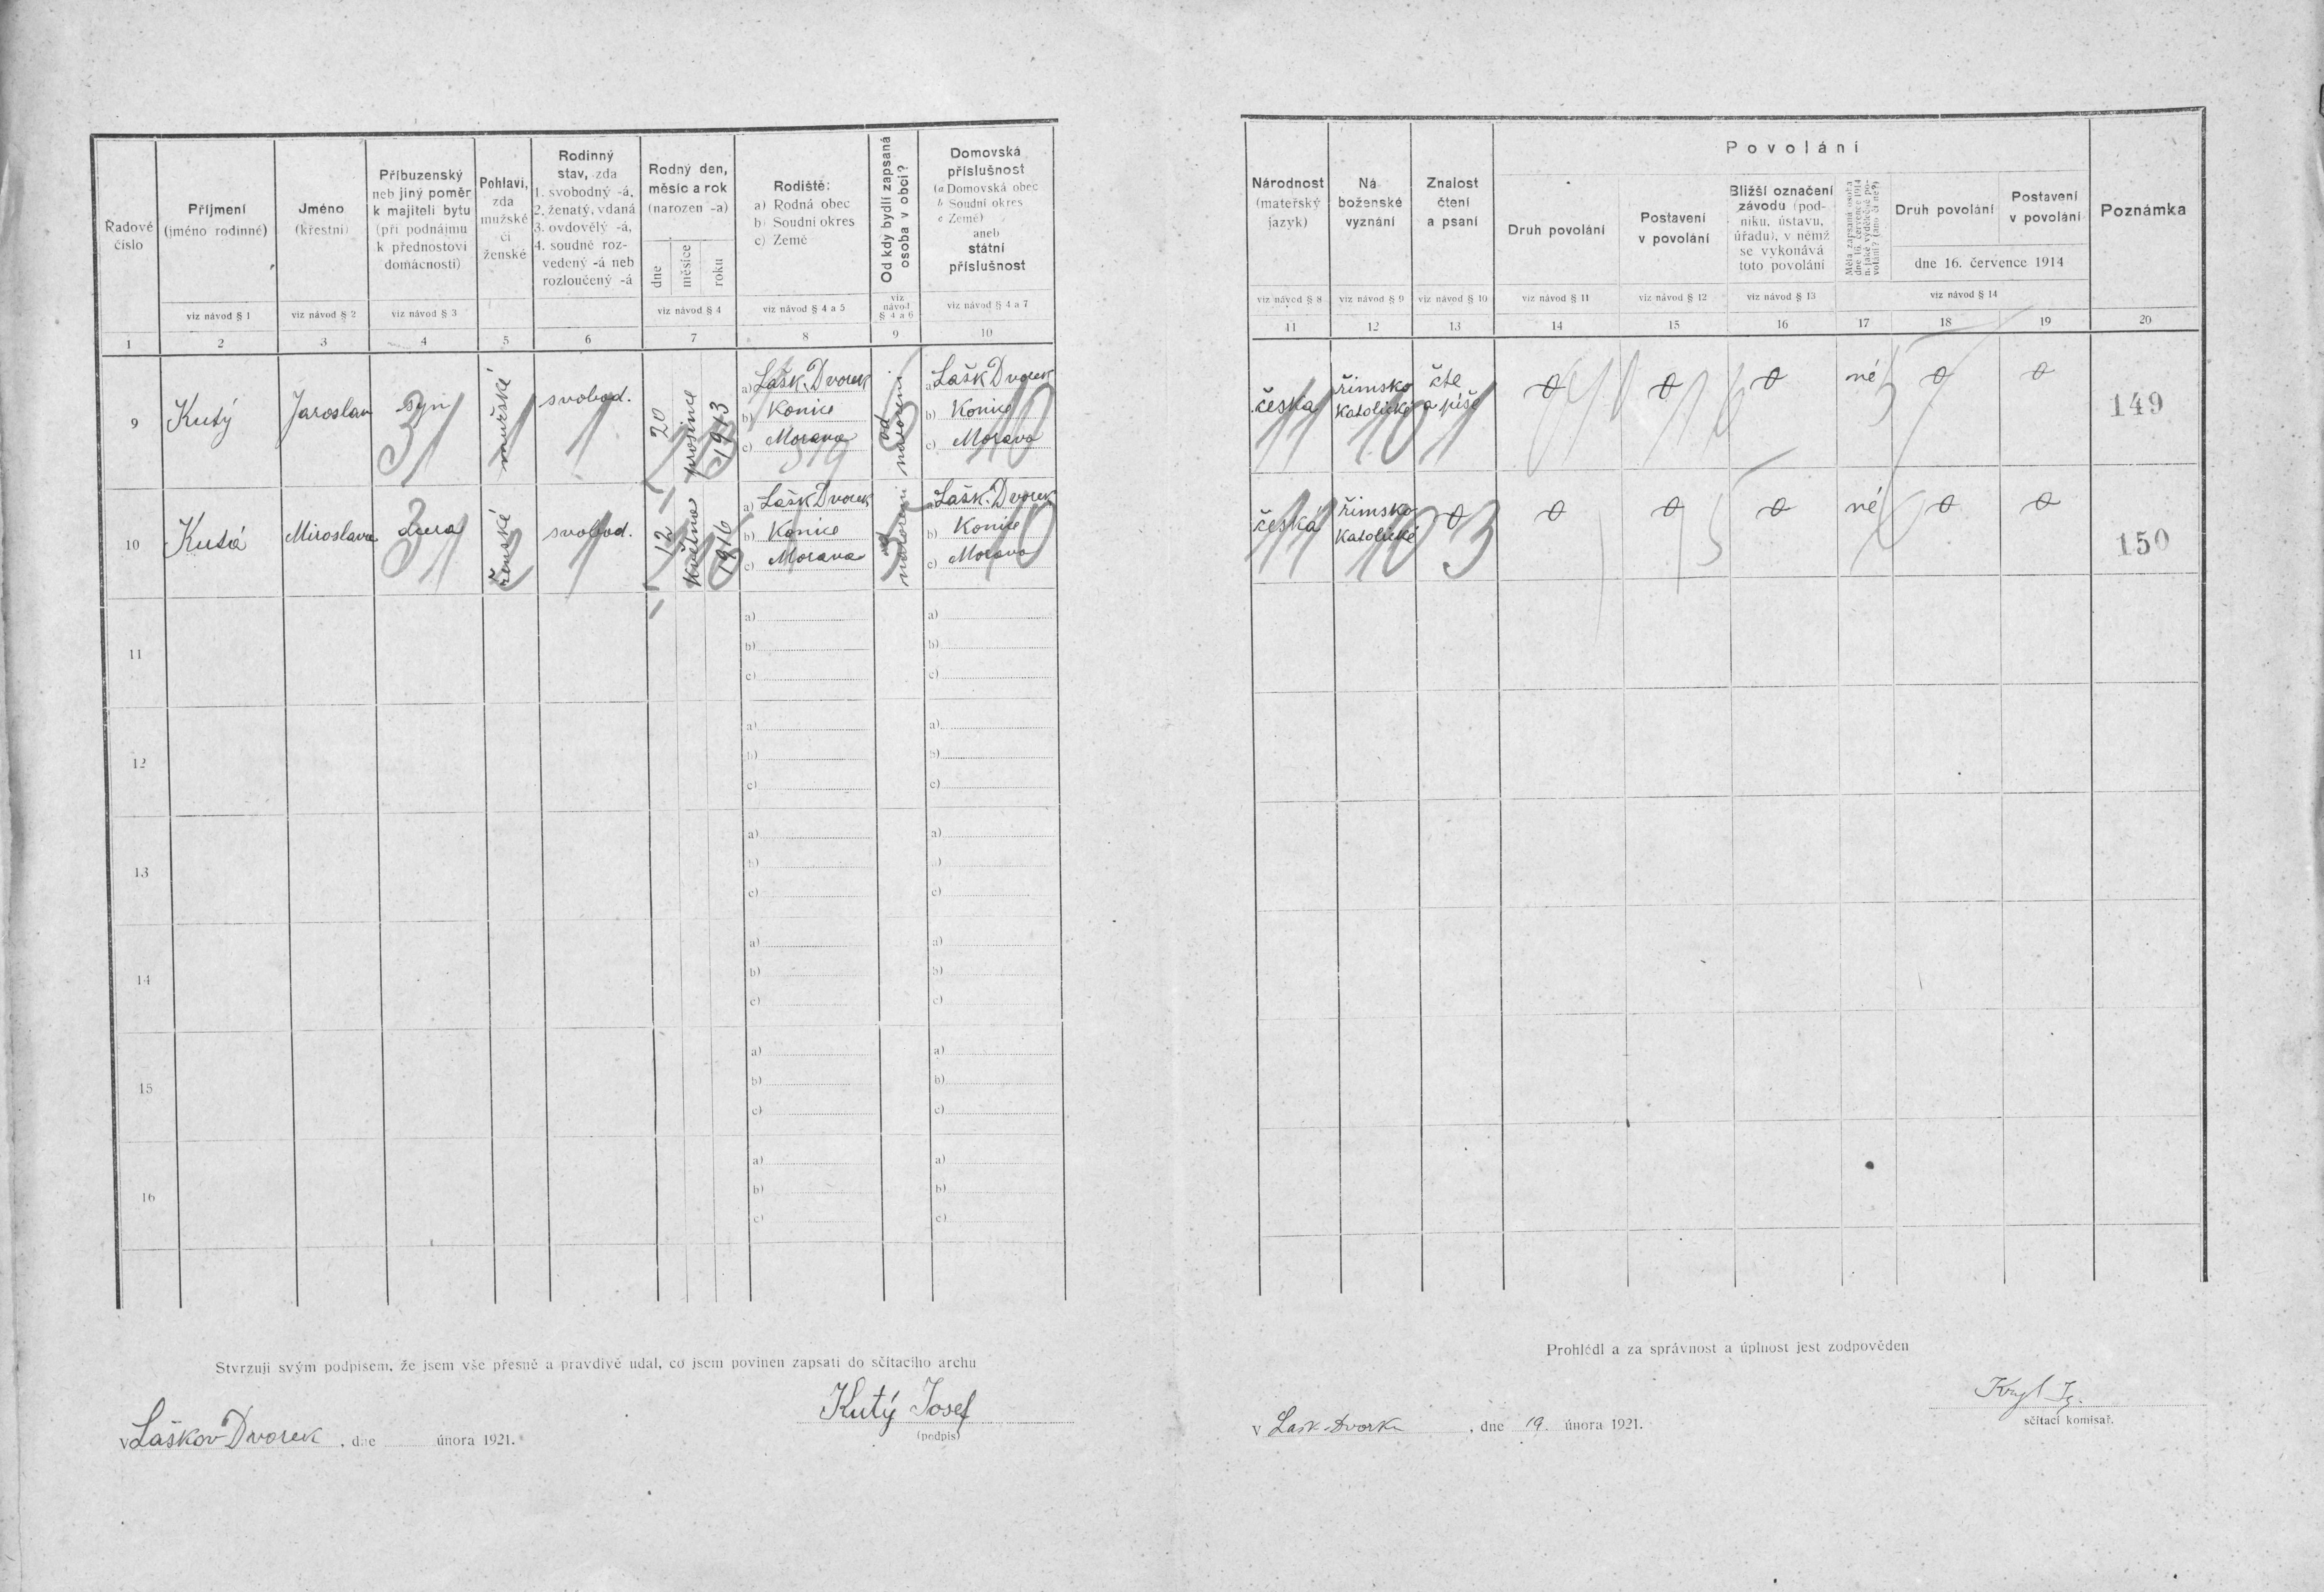 Řadové číslo
Příjmení
(jméno rodinné)
viz návod § 1
Jméno
(křestní)
viz návod § 2
Příbuzenský
neb jiný poměr
k majiteli bytu
(při podnájmu
k přednostovi
domácnosti)
viz návod § 3
Pohlaví,
zda
mužské
či
ženské
Rodinný
stav, zda
1. svobodný -á,
2. ženatý, vdaná
3. ovdovělý -á,
4. soudně roz-
vedený -á neb
rozloučený -á
Rodný den,
měsíc a rok
(narozen -a)
dne
měsíce
roku
viz návod § 4
Rodiště:
a) Rodná obec
b) Soudní okres
c) Země
viz návod § 4 a 5
Od kdy bydlí zapsaná
osoba v obci?
viz
návod
§ 4 a 6
Domovská
příslušnost
(a Domovská obec
b Soudní okres
c Země)
aneb
státní
příslušnost
viz návod § 4 a 7
1 2 3 4 5 6 7 8 9 10
9 Kutý Jaroslav syn mužské svobod. 20 prosince 1913
a) Lašk. Dvorek
b) Konice
c) Morava
od narození
a) Lašk Dvorek
b) Konice
c) Morava
10 Kutá Miroslava dcera ženské svobod. 12 května 1916
a) Lašk Dvorek
b) Konice
c) Morava
od narození
a) Lašk. Dvorek
b) Konice
c) Morava
11
a) a)
b) b)
c) c)
12
a) a)
b) b)
c) c)
13
a) a)
b) b)
c) c)
14
a) a)
b) b)
c) c)
15
a) a)
b) b)
c) c)
16
a) a)
b) b)
c) c)
Stvrzuji svým podpisem, že jsem vše přesně a pravdivě udal, co jsem povinen zapsati do sčítacího archu
Kutý Josef
(podpis)
v Laškov Dvorek, dne února 1921.
Národnost
(mateřský
jazyk)
viz návod § 8
Ná
boženské
vyznání
viz návod § 9
Znalost
čtení
a psaní
viz návod § 10
Povolání
Druh povolání
viz návod § 11
Postavení
v povolání
viz návod § 12
Bližší označení
závodu (pod-
niku, ústavu,
úřadu), v němž
se vykonává
toto povolání
viz návod § 13
Měla zapsaná osoba
dne 16. července 1914
n. jaké výdělečné po-
volání? (ano či ne?)
Druh povolání
Postavení
v povolání
dne 16. července 1914
viz návod § 14
Poznámka
11 12 13 14 15 16 17 18 19 20
česká
římsko
katolické
čte
a píše
né
149
česká
římsko
katolické
né
150
Prohlédl a za správnost a úplnost jest zodpověden
sčítací komisař.
v Lašk. Dvorku, dne 19. února 1921.